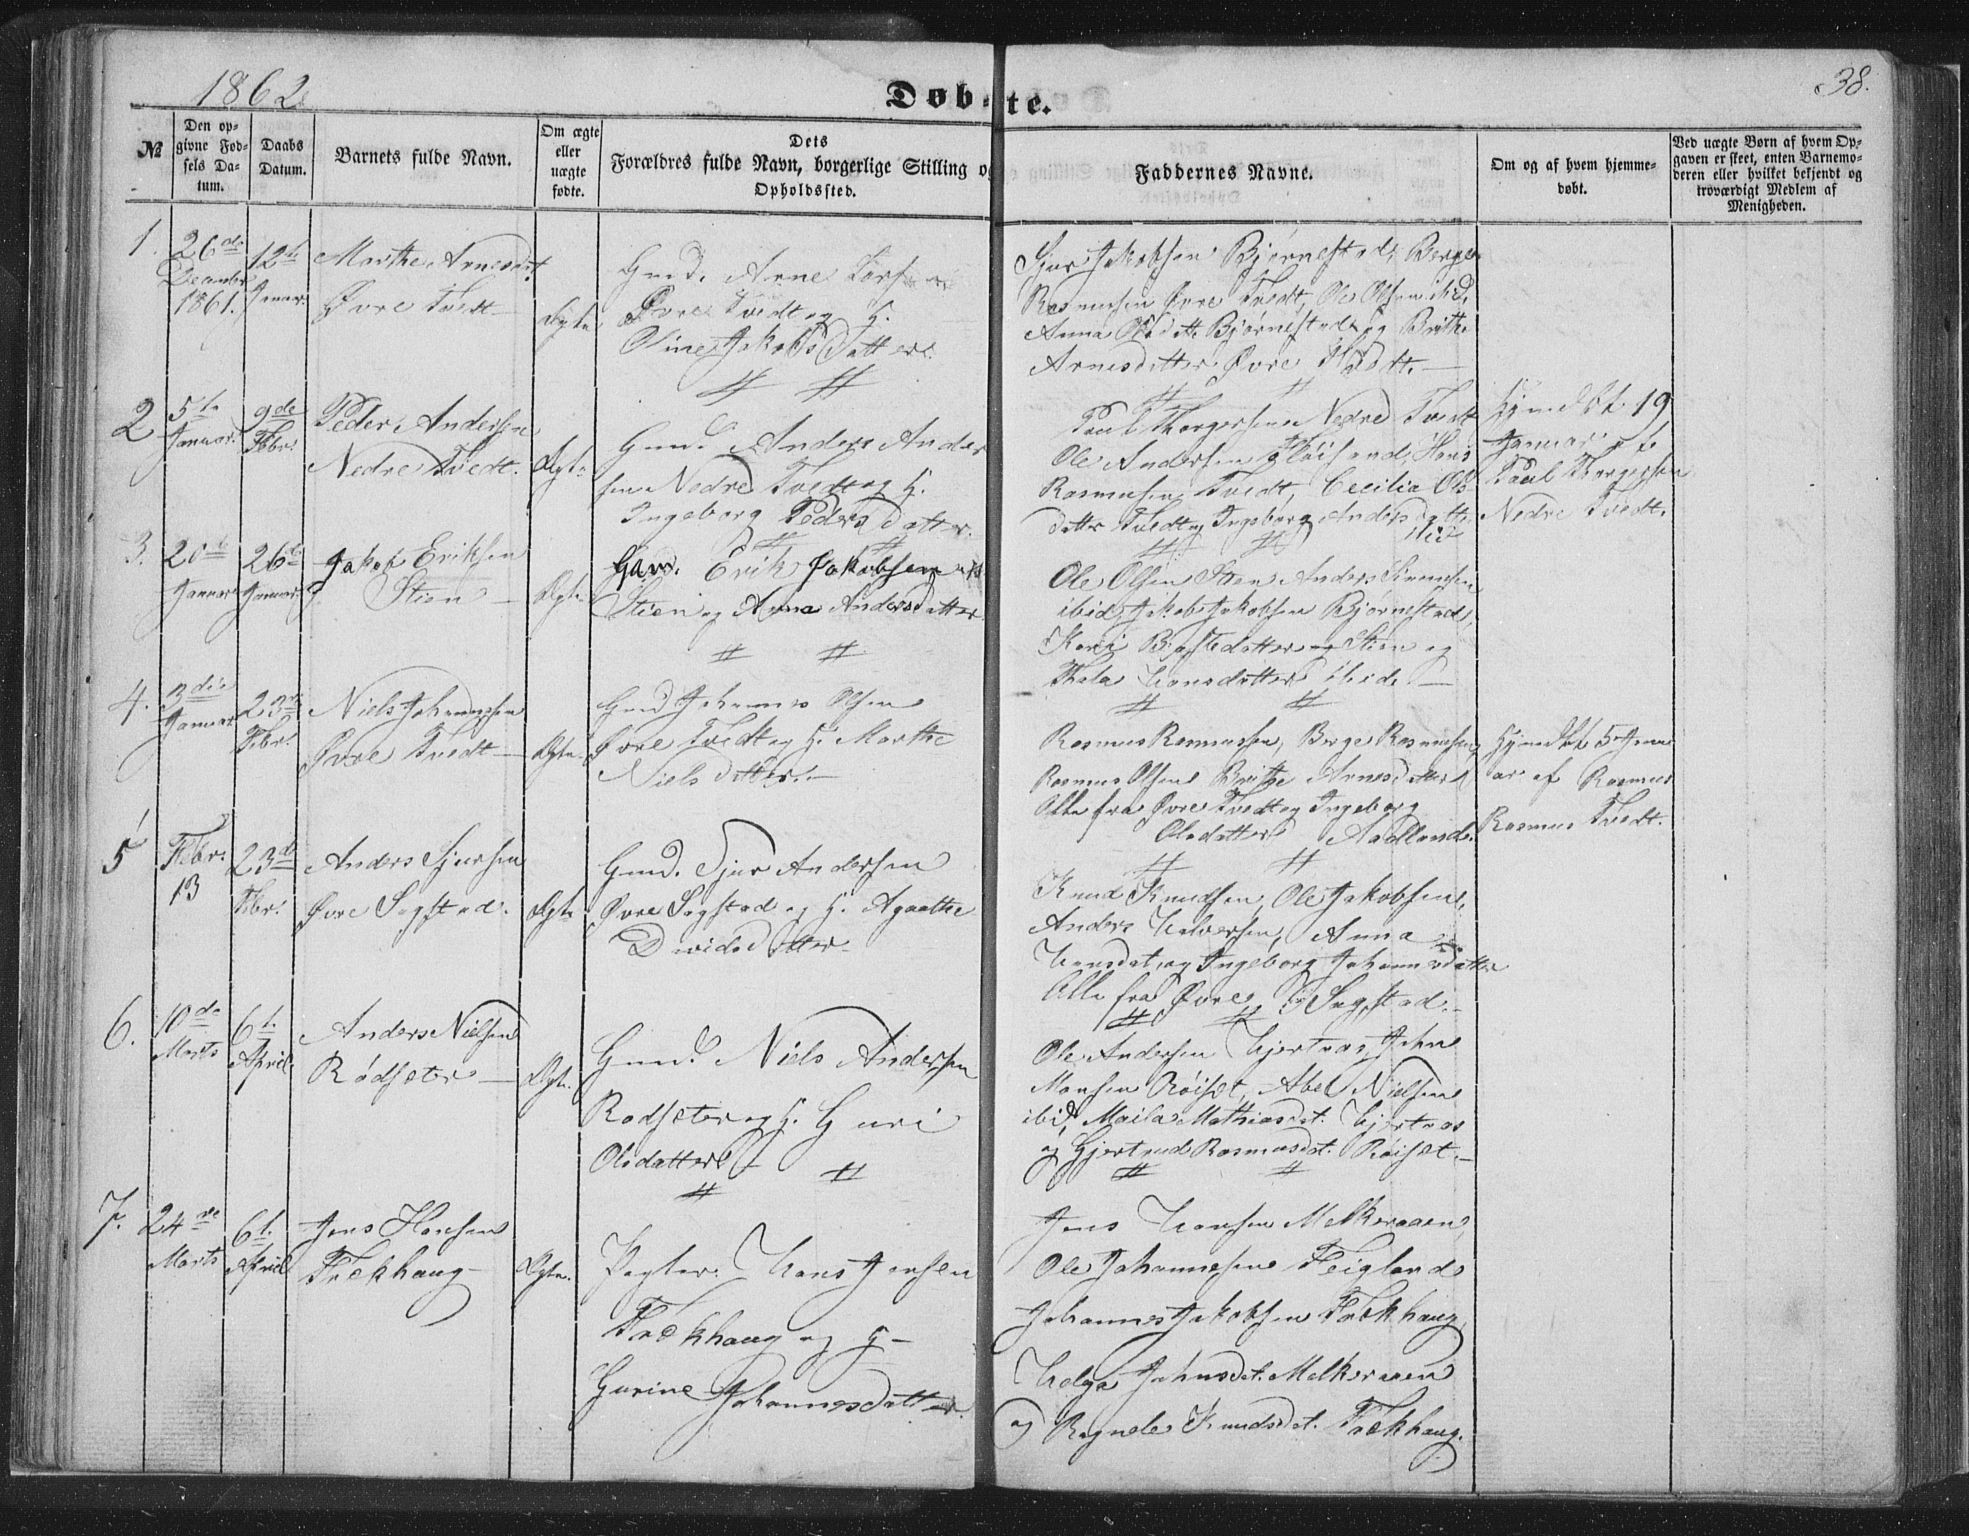 1862
Døbte.
38.
№
Den op-
givne Fød-
sels Da-
tum.
Daabs
Datum.
Barnets fulde Navn.
Om ægte
eller
uægte
fødte.
Dets
Forældres fulde Navn, borgerlige Stilling og
Opholdssted.
Faddernes Navne.
Om og af hvem hjemme-
døbt.
Ved uægte Børn af hvem Op-
gaven er skeet, enten Barnemo-
deren eller hvilket bekjendt og
troværdigt Medlem af
Menigheden.
1.
26de
Decembr
1861.
12te
Januar.
Marthe Arnesdat.
Øvre Tvedt
Ægte
Gmd. Arne
Øvre Tvedt og H.
Oline Jakobsdatter.
Sjur Jakobsen Bjørnestad, Berge
Rasmussen Øvre Tvedt, Ole Olsen ibid,
Anna Bjørnestad og Brithe
Arnesdatter Øvre Tvedt.
2
5te
Januar.
9de
Febr.
Peder Andersen
Nedre Tvedt.
Ægte
Gmd. Anders Ander
sen Nedre Tvedt og H.
Ingeborg Pedersdatter.
Paul Thorgersen Nedre Tvedt
Ole Andersen Hans
Rasmussen Tvedt, Cecilia Ols
datter Tvedt og Ingeborg Andersdatter
ibid
Hjmdbt. 19
Januar af
Paul Thorgersen
Nedre Tvedt.
3.
20de
Januar
26de
Januar
Jakob Eriksen
Stien
Ægte
Gmd. Erik Jakobsen
Stien og Anna Andersdatter
Ole Olsen Stien Anders Simensen
ibid, Jakob Jakobsen Bjørnestad,
Kari Stien og
Hansdatter ibid
4.
3die
Januar
23de
Febr.
Niels Johannessen
Øvre Tvedt
Ægte
Gmd Johannes Olsen
Øvre Tvedt og H. Marthe
Nielsdatter.
Rasmus Rasmussen, Berge Rasmussen,
Rasmus Olsen Brithe Arnesdatter
Alle fra Øvre Tvedt og Ingeborg
Olsdatter Aadland.
Hjmdbt 5 Janu
ar af Rasmus
Rasmus Tvedt.
5
Febr.
13
23de
Febr.
Anders Sjursen
Øvre Sogstad.
Ægte
Gmd. Sjur Andersen
Øvre Sogstad og H. Agaathe
Davidsdatter
Knud Knudsen, Ole Jakobsen,
Anders Halversen, Anna
Hansdat. og Ingeborg Johannesdatter
Alle fra Øvre Sogstad.
6.
10de
Marts
6te
April
Anders Nielsen
Rødseter
Ægte.
Gmd. Niels Andersen
Rødseter og H. Guri
Olsdatter
Ole Andersen Hjertaas, John
Monsen Røiset, Abel Nielsen
ibid, Maila Mathiasdt. Hjertaas
og Gjertrud Rasmusdt. Røiset.
7.
24de
Marts
6te
April
Jens Hansen
Fækhaug
Ægte.
Pagter. Hans Jensen
Fækhaug og H
Gurine Johannesdatter.
Jens Hansen Melkeraaen,
Ole Johannesen Feigland
Johannes Jakobsen Fækhaug,
Helga Johnsdt. Melkeraaen
og Ragnele Knudsdt. Fækhaug.